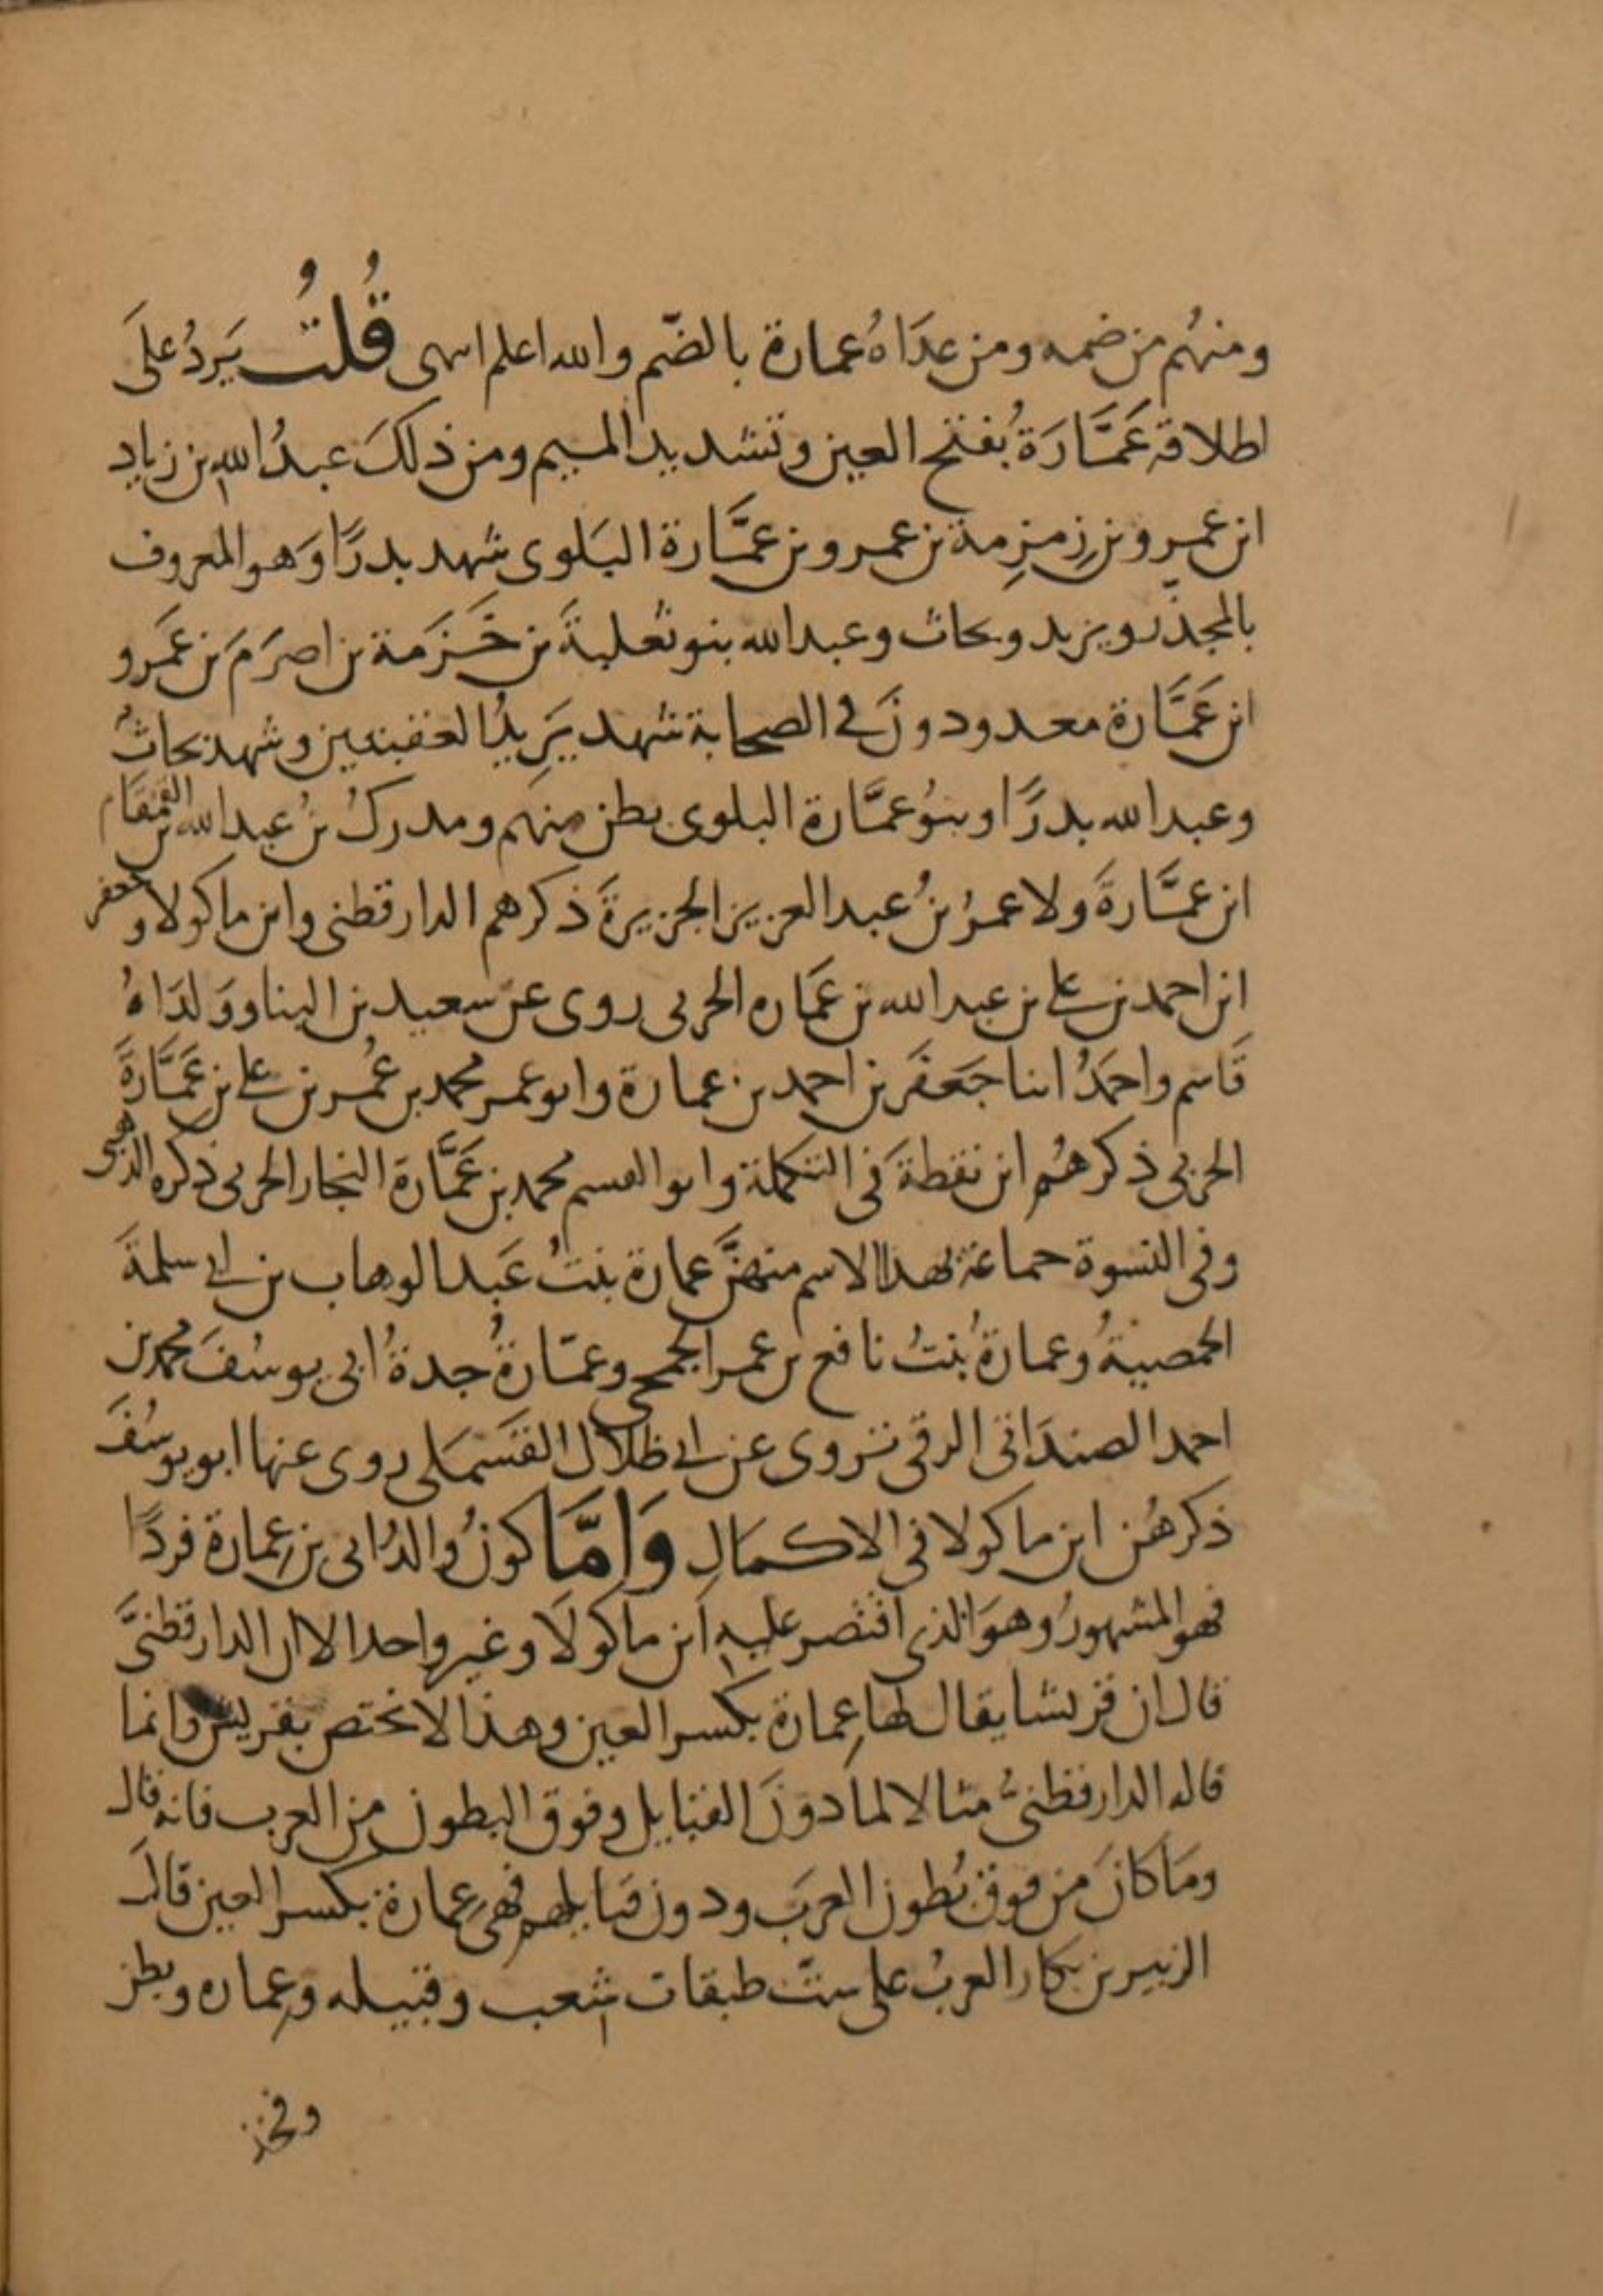 ومنهُم من ضمه ومن عدَاهُ عمارة بالضّم والله اعلم اسهى قُلتُ يَردُ على
اطلاقه عَمَّارَة بفتح العين وتشديد الميم ومن ذلكَ عبدُ الله بن زياد
ابن عمرو بن زمزمة بن عمرو بن عمَّارة البَلوى شهد بدرًا وَهو المعروف
بالمجذّر ويزيد وبحاث وعبد الله بنو ثعلبةَ بن خَزَمة بن اصرَمَ بن عَمرو
ابن عَمَّارة معدودونَ في الصحابة شهد يَزِيدُ العقبتين وشهد بحاثُ
وعبد الله بدرًا وبنوُ عمَّارة البلوى بطن منهم ومدركُ بنُ عبد الله بن القمقام
ابن عمَّارةَ ولا عمرُ بنُ عبد العزيز الجزيرةَ ذكرهم الدارقطنى وابن ماكولا وجعفر
ابن احمد بن على بن عبد الله بن عمَّاره الحربى روى عن سعيد بن البنا ووَلدَاهُ
قَاسم واحمَدُ ابنا جَعفَر بن احمد بن عمارة وابو عمر محمد بن عُمر بن على بن عَمَّارةَ
الحربى ذكرهُم ابن نقطةَ في التكملة وابو القسم محمد بن عَمَّارة النجار الحربى ذكره الذهبى
وفى النسوة جماعة بهذا الاسم منهنَّ عمارة بنتُ عَبد الوهاب بن ابى سلمةَ
الحمصيةُ وعمارةُ بنتُ نافع بن عمر الجمحى وعمّارةُ جدةُ ابى يوسُفَ محمد بن
احمد الصيدَانى الرقى تروى عن ابى ظلال القَسْمَلى روى عنها ابو يوسُفَ
ذكرهُن ابن ماكولا فى الاكمَالِ وَامَّا كونُ والدُ ابى بن عِمارة فردًا
فهو المشهورُ وهوَ الذى اقتصر عليه ابن ماكولَا وغير واحد الا ان الدارقطنىَّ
قال ان قريشا يقال لها عِمارة بكسر العين وهذا لا يختص بقريش وانما
قاله الدارقطنىُّ مثالا لما دونَ القبايل وفوق البطون من العرب فانه قال
ومَا كانَ من فوق بُطون العرَب ودون قبايلهم فهى عِمارة بكسر العين قالَ
الزبير بن بكار العربُ على ستّ طبقات شعب وقبيله وعِماره وبطن
وفخذ